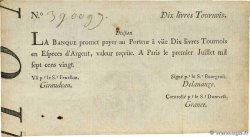 N.º 390097. Dix livres Tournois.
Division
LA BANQUE promet payer au Porteur à vüe Dix livres Tournois
en Especes d'Argent, valeur reçeüe. A Paris le premier Juillet mil
sept cens vingt.
Vû p.r le S.r Fenellon. Signé p.r le S.r Bourgeois.
Giraudeau. Delanauze.
Controllé p.r le S.r Durevest.
Granet.